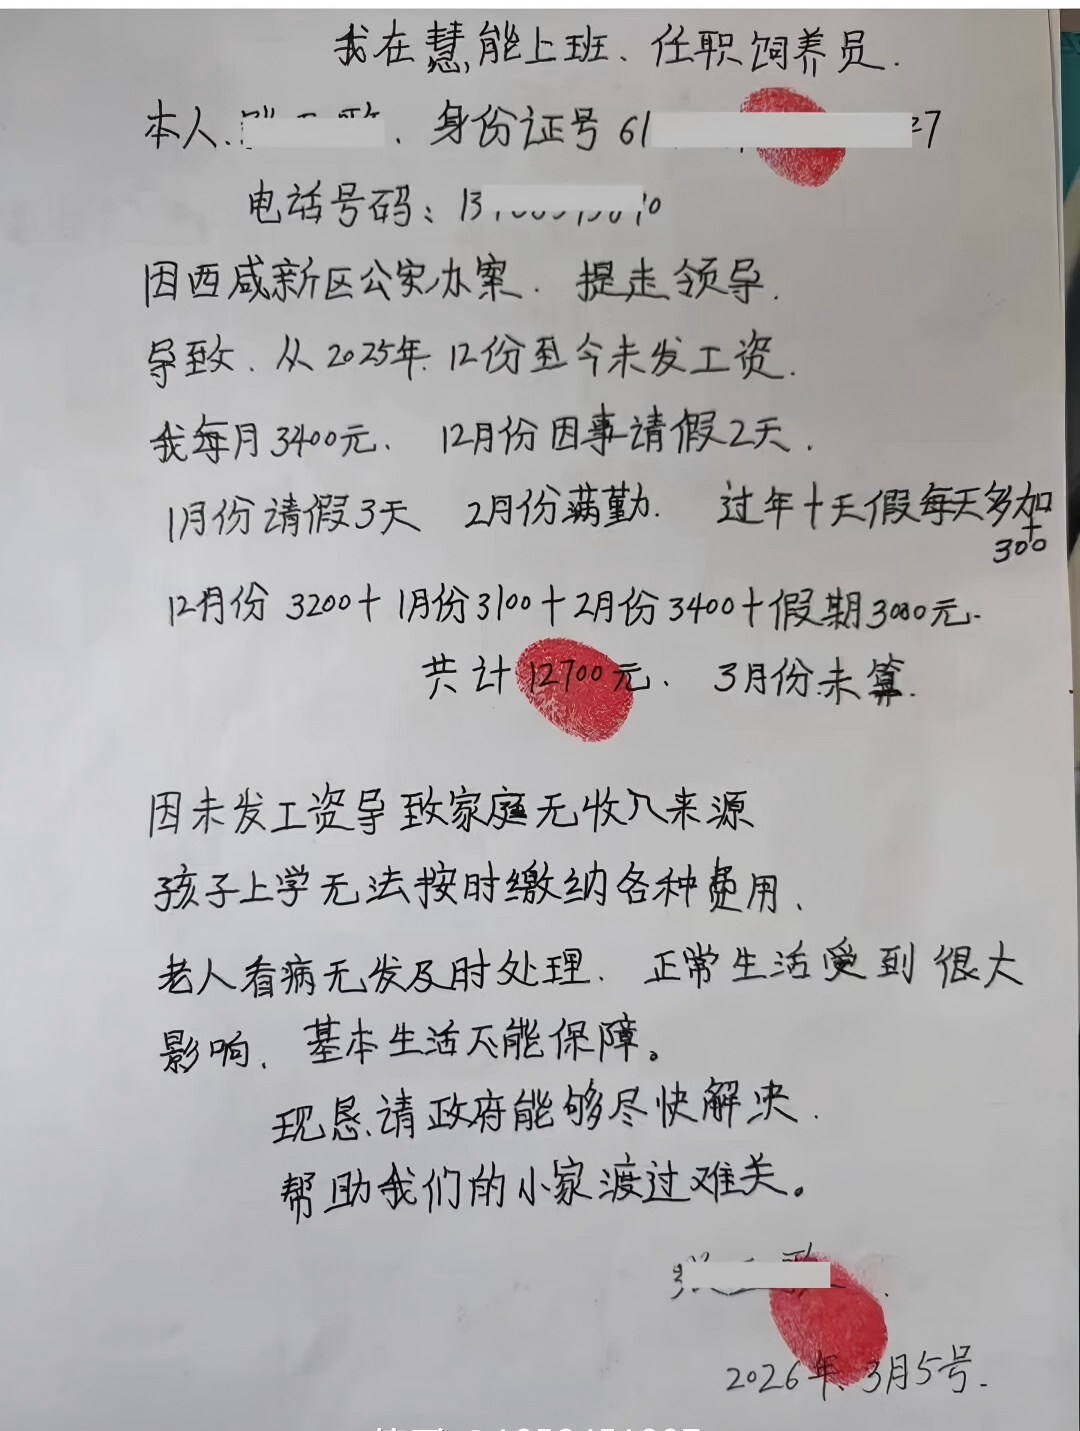 我在慧能上班、任职饲养员.
本人、 . 身份证号 61 7
电话号码: 13 10
因西咸新区公安办案. 提走领导.
导致、从2025年.12份至今未发工资.
我每月3400元、 12月份因事请假2天.
1月份请假3天 2月份满勤. 过年十天假每天多加
300
12月份 3200+1月份3100+2月份3400+假期3000元.
共计12700元、 3月份未算.
因未发工资导致家庭无收入来源
孩子上学无法按时缴纳各种费用、
老人看病无发及时处理. 正常生活受到很大
影响、基本生活不能保障。
现恳请政府能够尽快解决.
帮助我们的小家渡过难关。
2026年.3月5号.